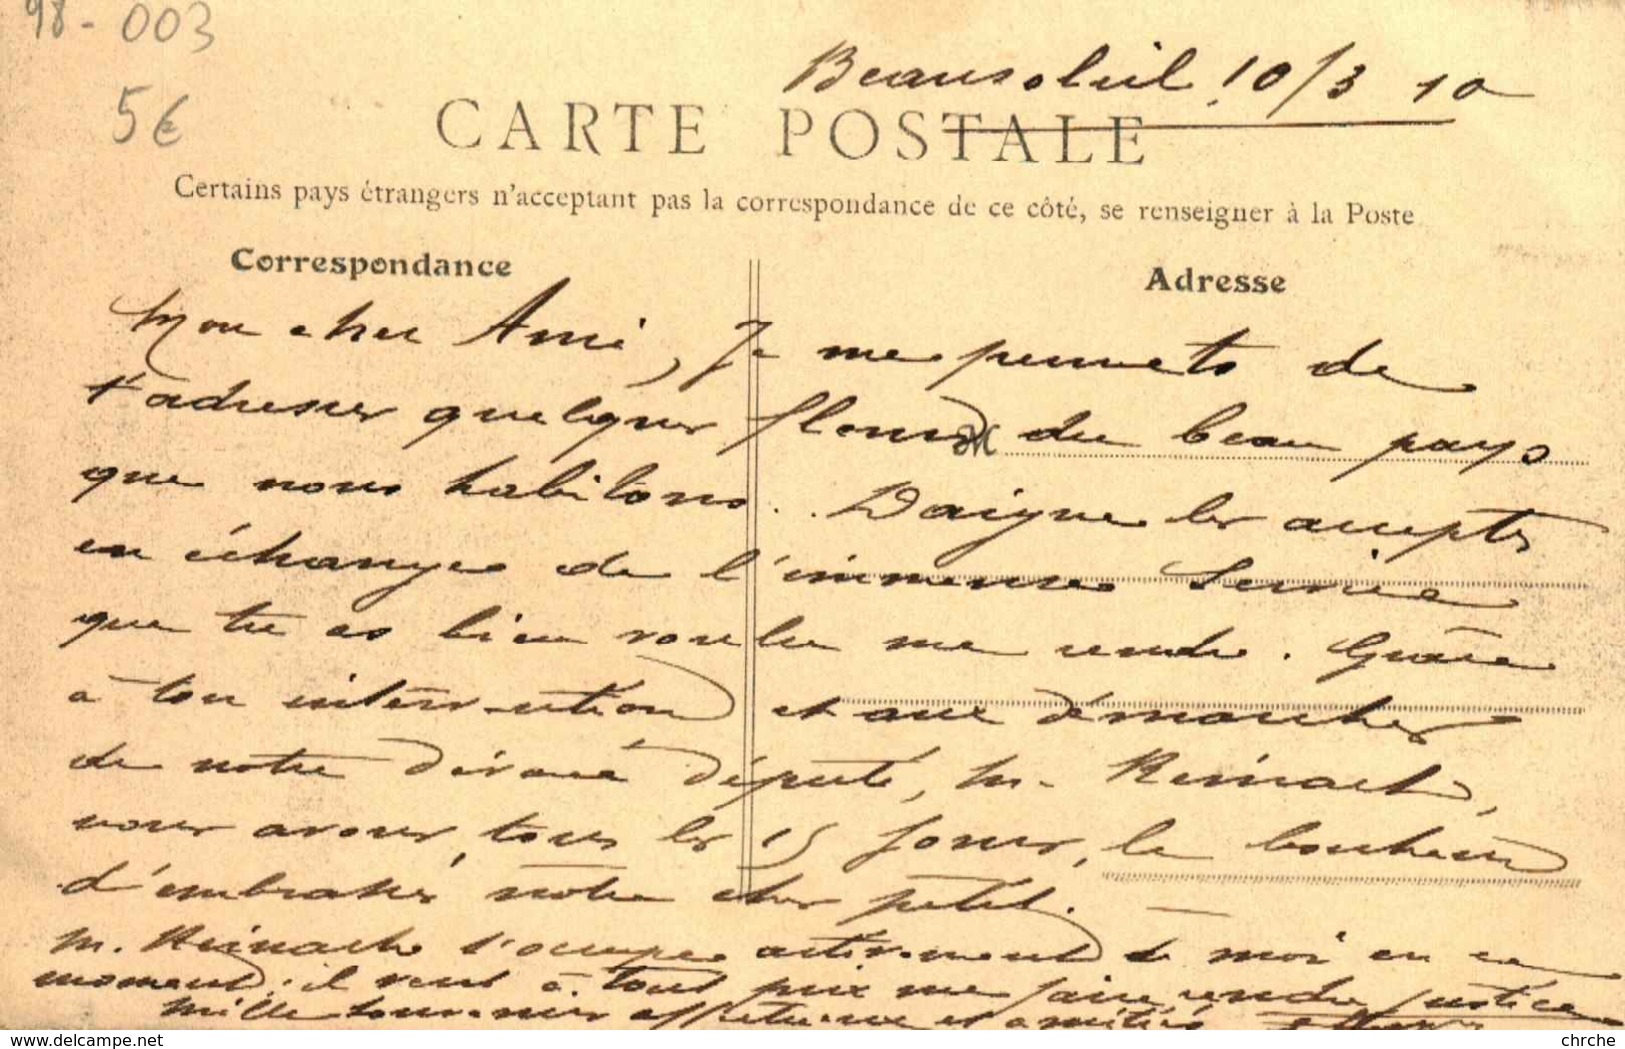 98-003
5€
Beausoleil 10/3 10
CARTE POSTALE
Certains pays étrangers n'acceptant pas la correspondance de ce côté, se renseigner à la Poste
Correspondance
Adresse
Mon cher Ami, Je me permets de
t'adresser quelques fleurs du beau pays
que nous habitons. Daigne les accepter
en échange de l'immense service
que tu as bien voulu me rendre. Grâce
à ton intervention et aux démarches
de notre dévoué député, M. Reinach,
nous avons, tous les 15 jours, le bonheur
d'embrasser notre cher petit.
M. Reinach s'occupe activement de moi en ce
moment; il veut à tout prix me faire rendre justice
Mille souvenirs affectueux et amitiés
delcampe.net
chrche